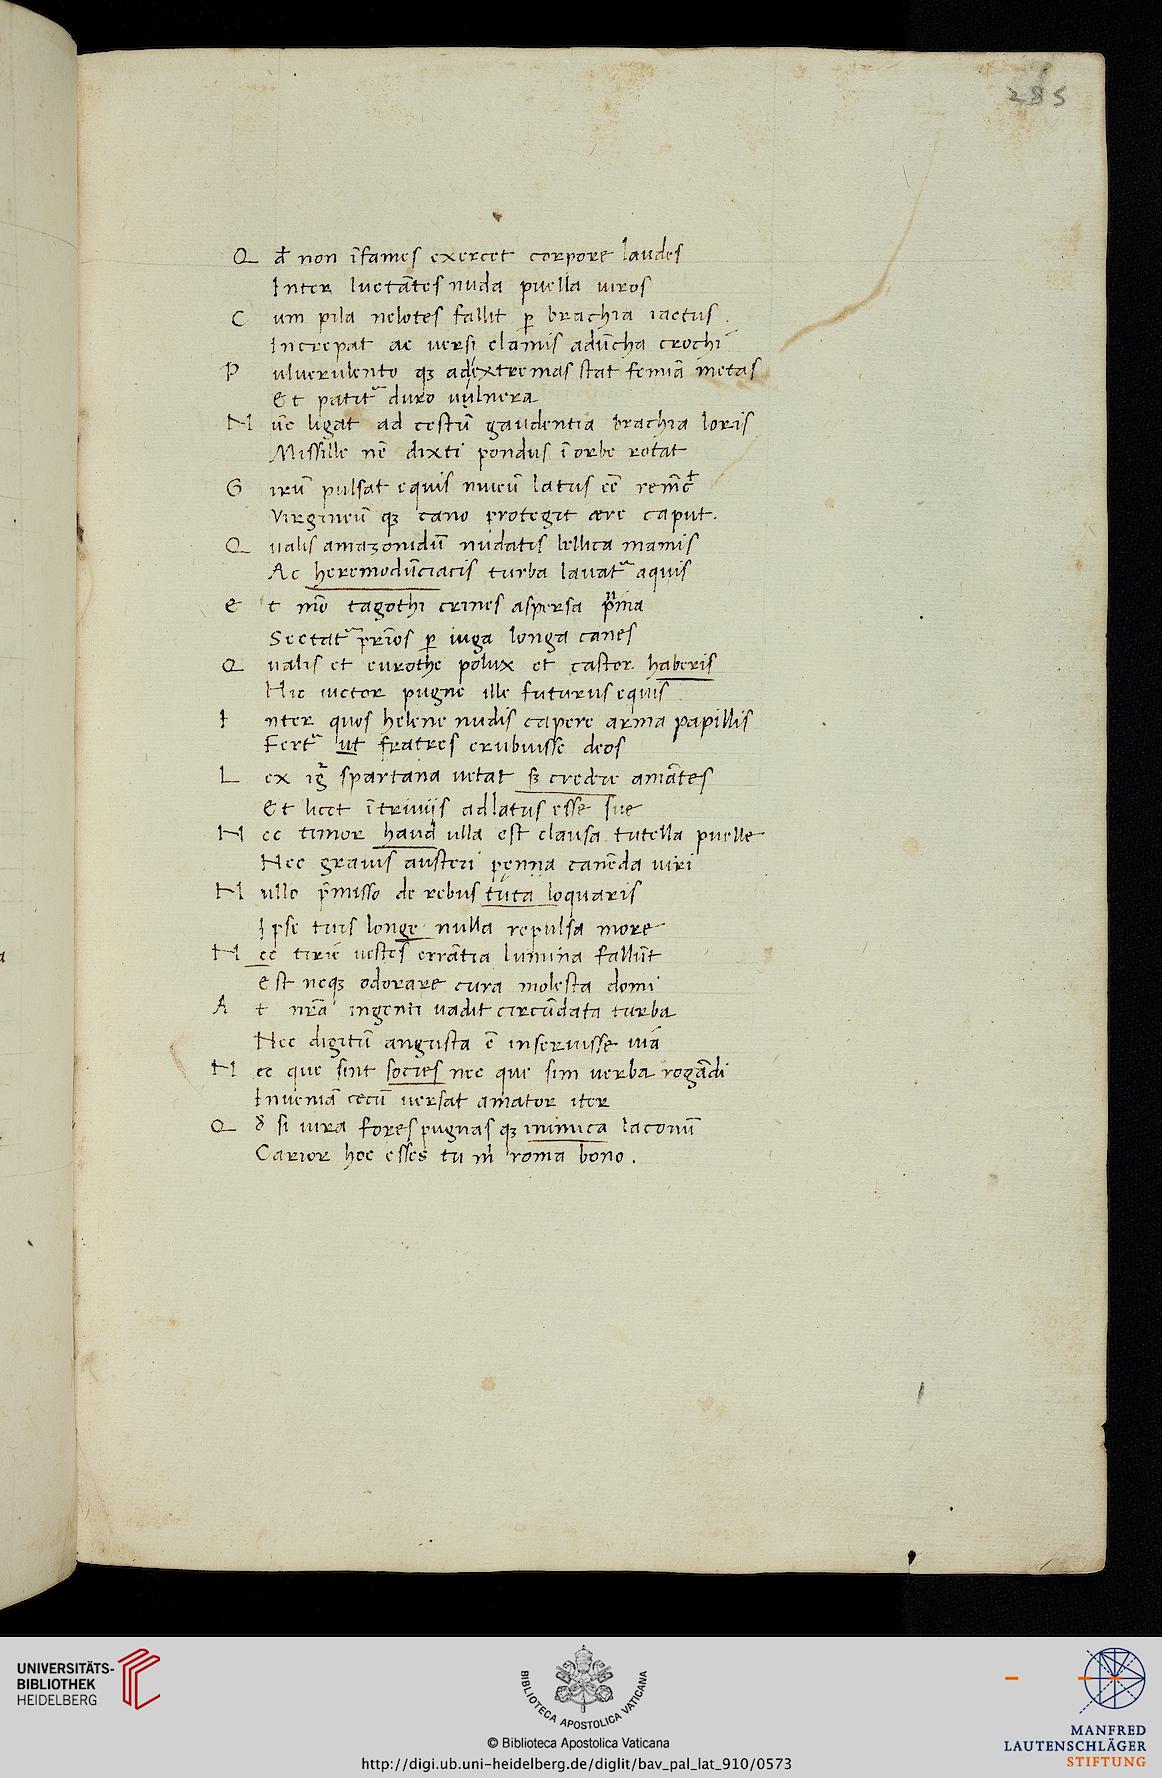 285
Q đ non īfames exercet corpore laudes
Inter luctātes nuda puella viros
C um pila nelotes fallit p̱ brachia iactus .
Increpat ac versi clamis adūcha crochi
P ulverulento qꝫ ad extremas stat femīa metas
Et patitᷣ duro vulnera
N ūc ligat ad cestū gaudentia brachia loris
Missille nē dixti pondus ī orbe rotat
G irū pulsat equis niueū latus eē
Virgineū qꝫ cano protegit ære caput.
Q ualis amazonidū nudatis bellica mamis
Ac heremodūciacis turba lavatᷣ aquis
E t mō tagothi crines aspersa
Sectatᷣ prīos p̱ iuga longa canes
Q ualis et eurothe polux et castor haberis
Hic uictor pugne ille futurus equis
I nter quos helene nudis capere arma papillis
Fertᷣ ut fratres erubuisse deos
L ex igᷣ spartana uetat amātes
Et licet ītriuijs ad latus esse sue
N ec timor haud ulla est clausa tutella puelle
Nec grauis austeri penna canēda viri
N ullo p̄misso de rebus tuta loquaris
Ipse tuis longe nulla repulsa more
N ec tirie uestes errātia lumina fallūt
Est neqꝫ odorare cura molesta domi
A t nr̄a ingenti uadit circūdata turba
Nec digitū angusta ē inseruisse uiā
N ec que sint socies nec que sim verba rogādi
Inueniā cecū uersat amator iter
Q ꝺ si iura fores pugnas qꝫ inimica laconū
Carior hoc esses tu m̄ roma bono .
UNIVERSITÄTS-
BIBLIOTHEK
HEIDELBERG
BIBLIOTECA APOSTOLICA VATICANA
© Biblioteca Apostolica Vaticana
http://digi.ub.uni-heidelberg.de/diglit/bav_pal_lat_910/0573
MANFRED
LAUTENSCHLÄGER
STIFTUNG